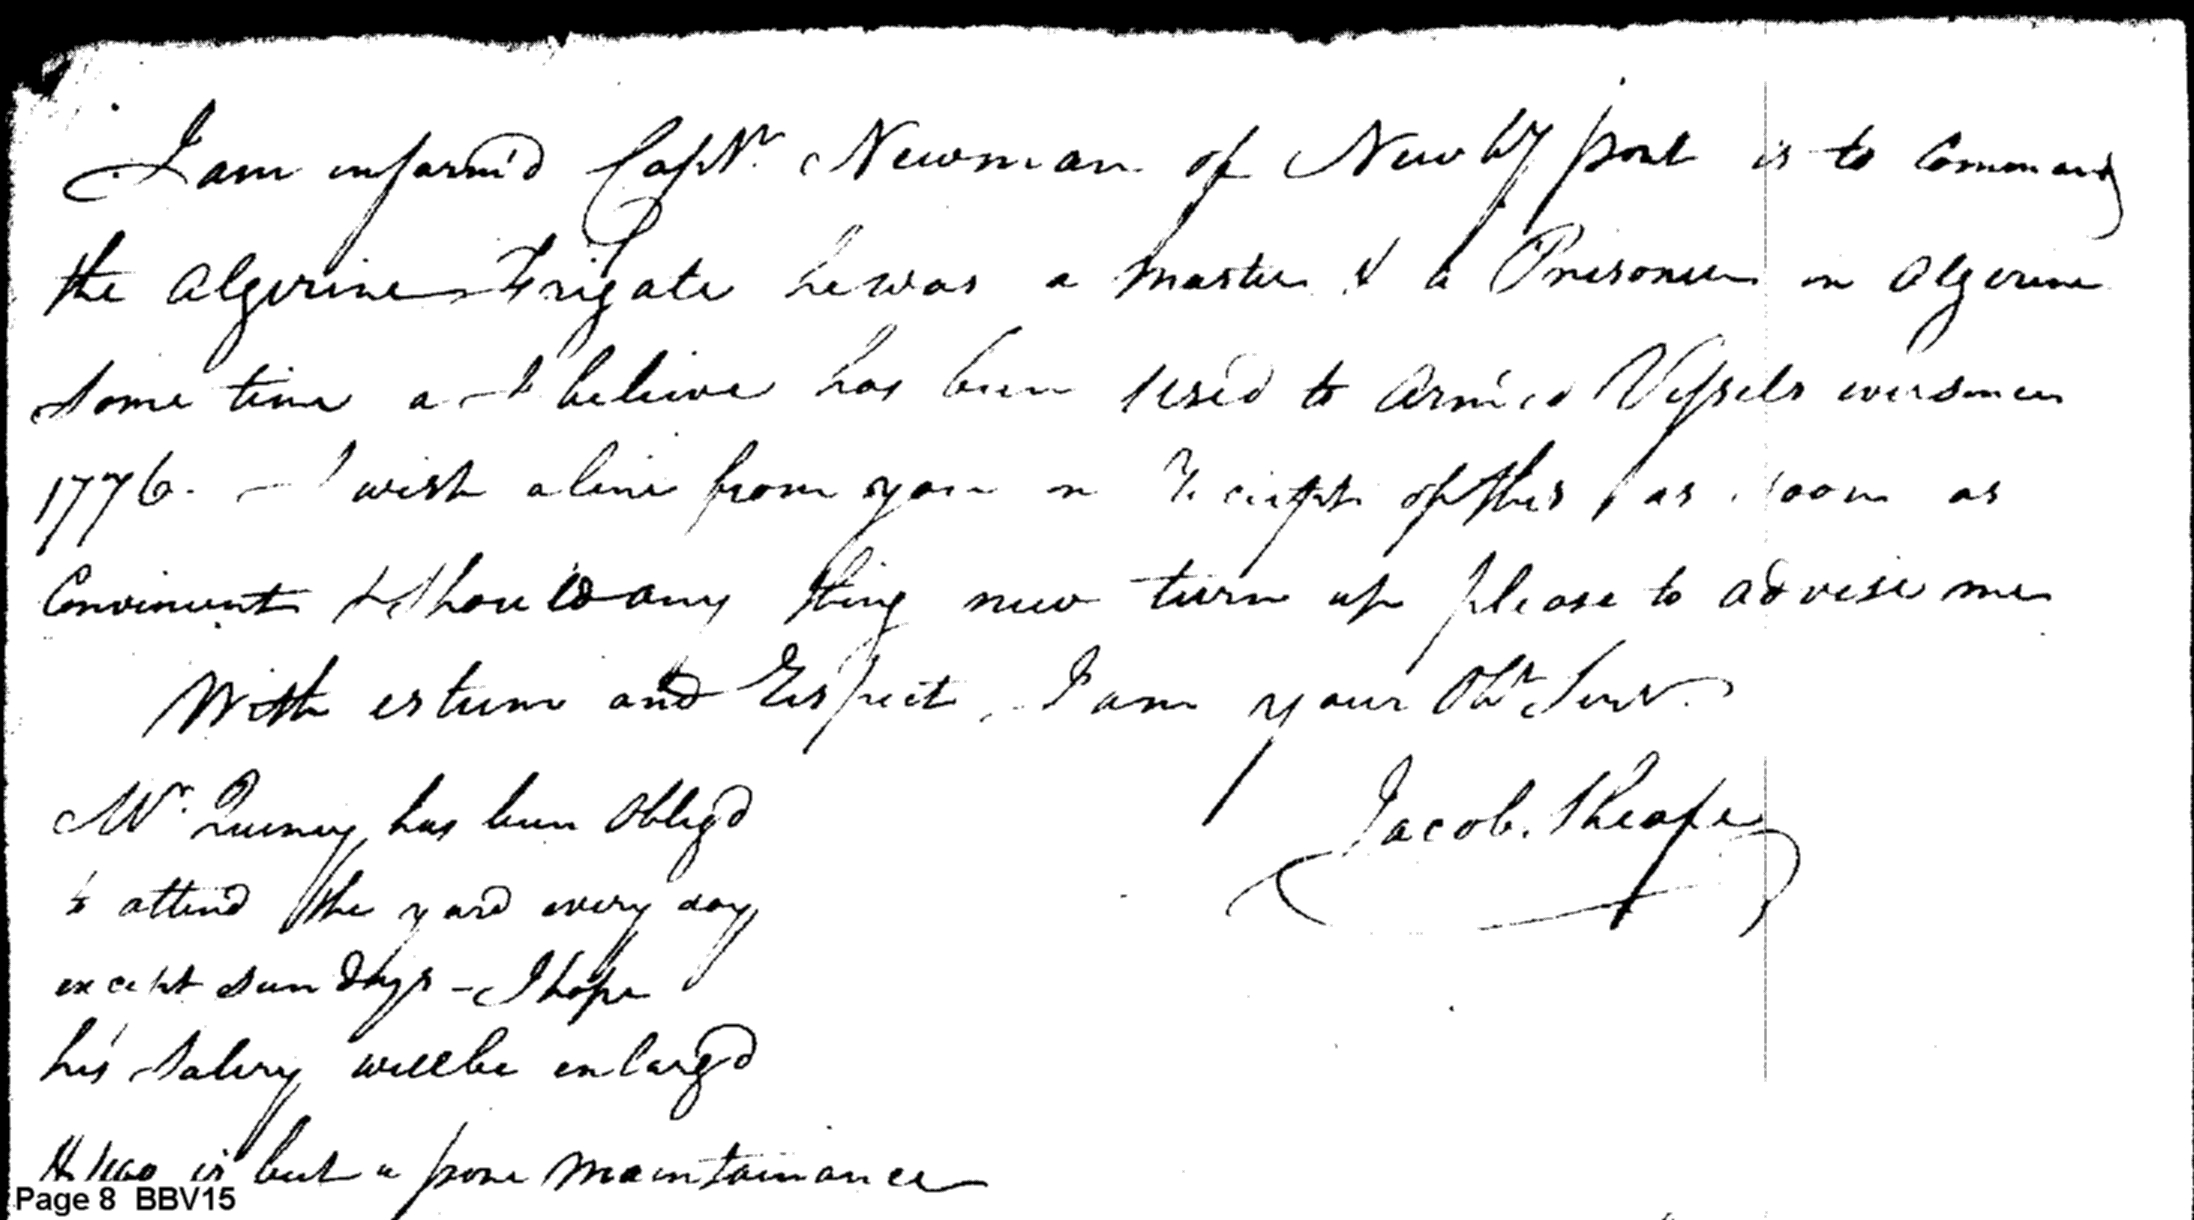 I am inform'd Capt. Newman of Newbyport is to Command
the Algerine Frigate he was a Master & a Prisoner in Algerine
some time a I believe has been used to Arm'd Vessels ever since
1776. — I wish a line from you on Receipt of this as soon as
Convinient & should any thing new turn up please to advise me
With esteem and Respect, I am your Obt Servt.
Jacob. Sheafe
Mr. has been Oblig'd
to attend the yard every day
except Sundays - I hope
his Salery will be enlarg'd
is but a pore maintainance
Page 8 BBV15